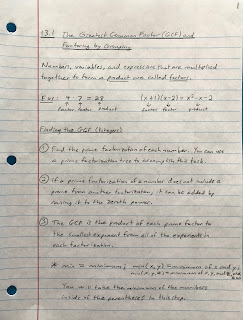 1
13.1 The Greatest Common Factor (GCF) and
Factoring by Grouping
Numbers, variables, and expressions that are multiplied
together to form a product are called factors.
Exs: 4 · 7 = 28 (x+1)(x-2) = x²-x-2
↑ ↑ ↑ ↑ ↑ ↑
factor factor product factor factor product
Finding the GCF (Integers)
① Find the prime factorization of each number. You can use
a prime factorization tree to accomplish this task.
② If a prime factorization of a number does not include a
prime from another factorization, it can be added by
raising it to the zeroth power.
③ The GCF is the product of each prime factor to
the smallest exponent from all of the exponents in
each factorization.
* min = minimum; min(x,y) = minimum of x and y;
min(x,y,z) = minimum of x, y, and z,
You will take the minimum of the numbers
inside of the parentheses in this step.